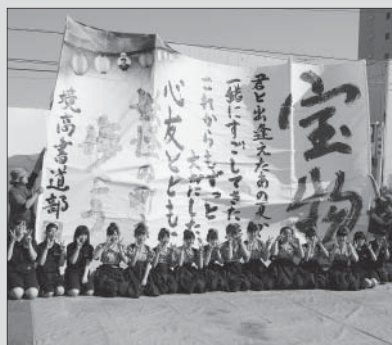 宝物
君と出逢えたあの夏から
一緒にすごしてきた
これからもずっと
大切にした
心友とともに
境高書道部